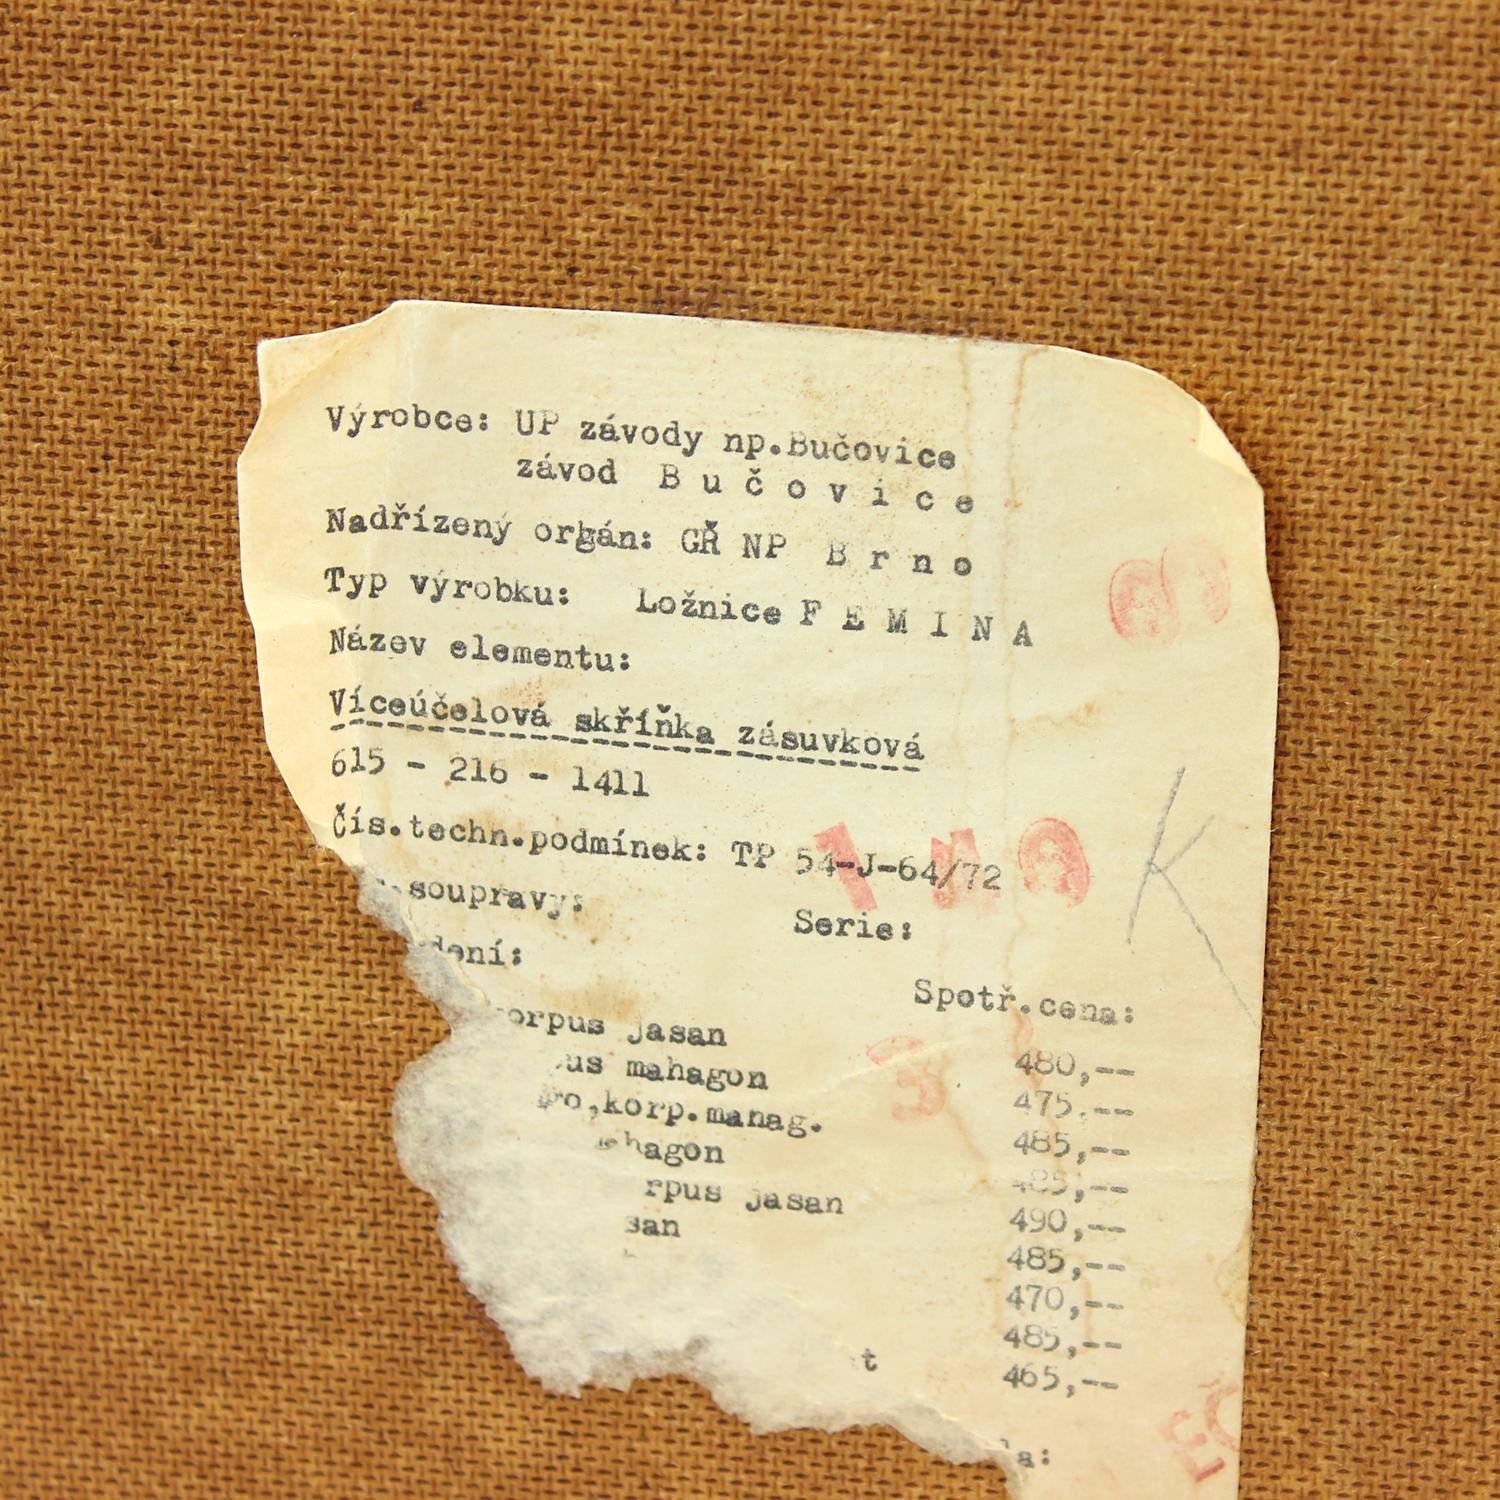 Výrobce: UP závody np.Bučovice
závod B u č o v i c e
Nadřízený orgán: GŘ NP B r n o
Typ výrobku: Ložnice F E M I N A
Název elementu:
Víceúčelová skříňka zásuvková
615 - 216 - 1411
Čís.techn.podmínek: TP 54-J-64/72
soupravy: Serie:
dení:
Spotř.cena:
orpus jasan 480,--
us mahagon 475,--
korp.mahag. 485,--
hagon 485,--
rpus jasan 490,--
san 485,--
470,--
485,--
t 465,--
a:
K